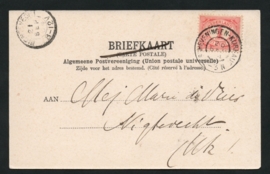 BRIEFKAART
(CARTE POSTALE)
Algemeene Postvereeniging (Union postale universelle)
Zijde voor het adres bestemd. (Côté réservé à l'adresse.)
AAN Mej Marie de Vries
Nigtevecht